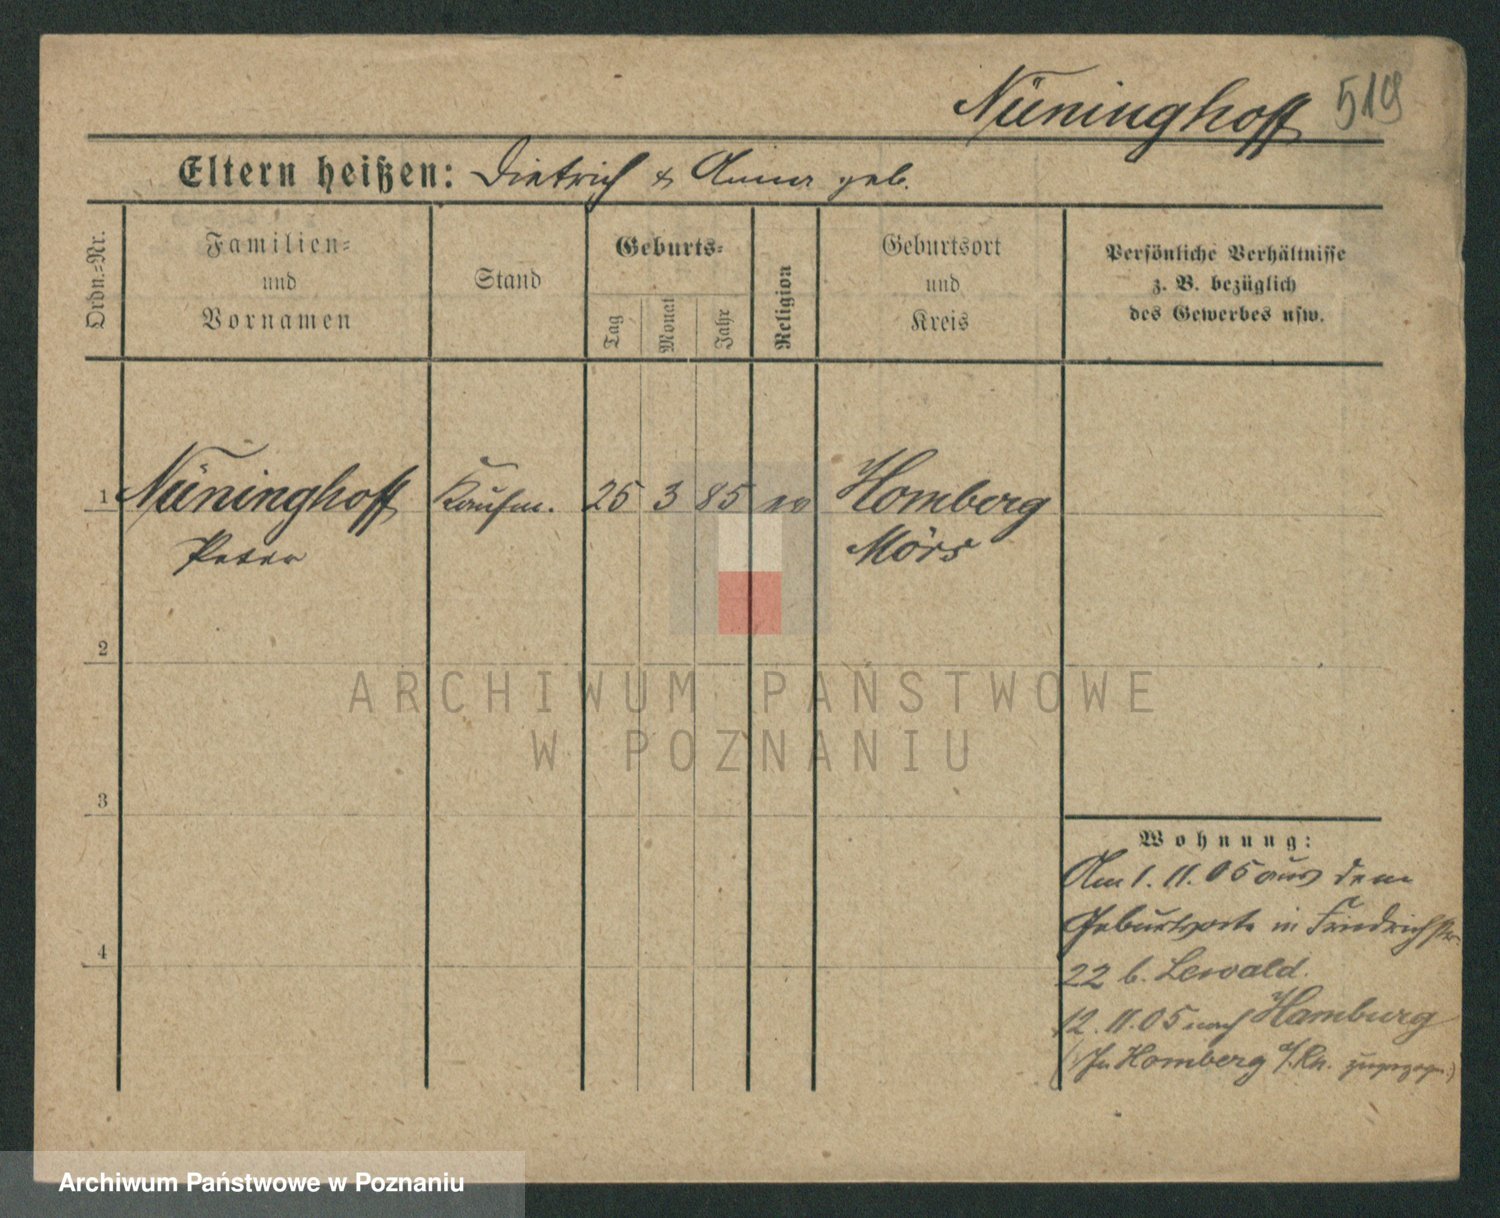 Nüninghoff 519
Eltern heißen: Dietrich & Anna geb.
Ordn.=Nr.
Familien=
und
Vornamen
Stand
Geburts=
Tag
Monat
Jahr
Religion
Geburtsort
und
Kreis
Persönliche Verhältnisse
z. B. bezüglich
des Gewerbes usw.
1 Nüninghoff Kaufm. 25 3 85 ev Homberg
Peter Mörs
2
ARCHIWUM PAŃSTWOWE
W POZNANIU
3
Wohnung:
Am 1. 11. 05 aus dem
Geburtsorte in Friedrichstr.
4
22 b. Lewald.
12. 11. 05 nach Hamburg
(In Homberg a/Rh. zugezogen.)
Archiwum Państwowe w Poznaniu